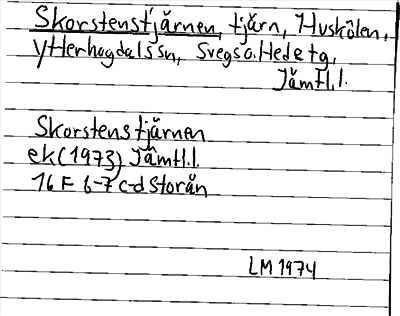 Skorstenstjärnen, tjärn, Huskölen,
Ytterhogdals sn, Svegs o. Hede tg,
Jämtl.l.
Skorstenstjärnen
ek (1973) Jämtl.l.
16 F 6-7 c-d Storån
LM 1974